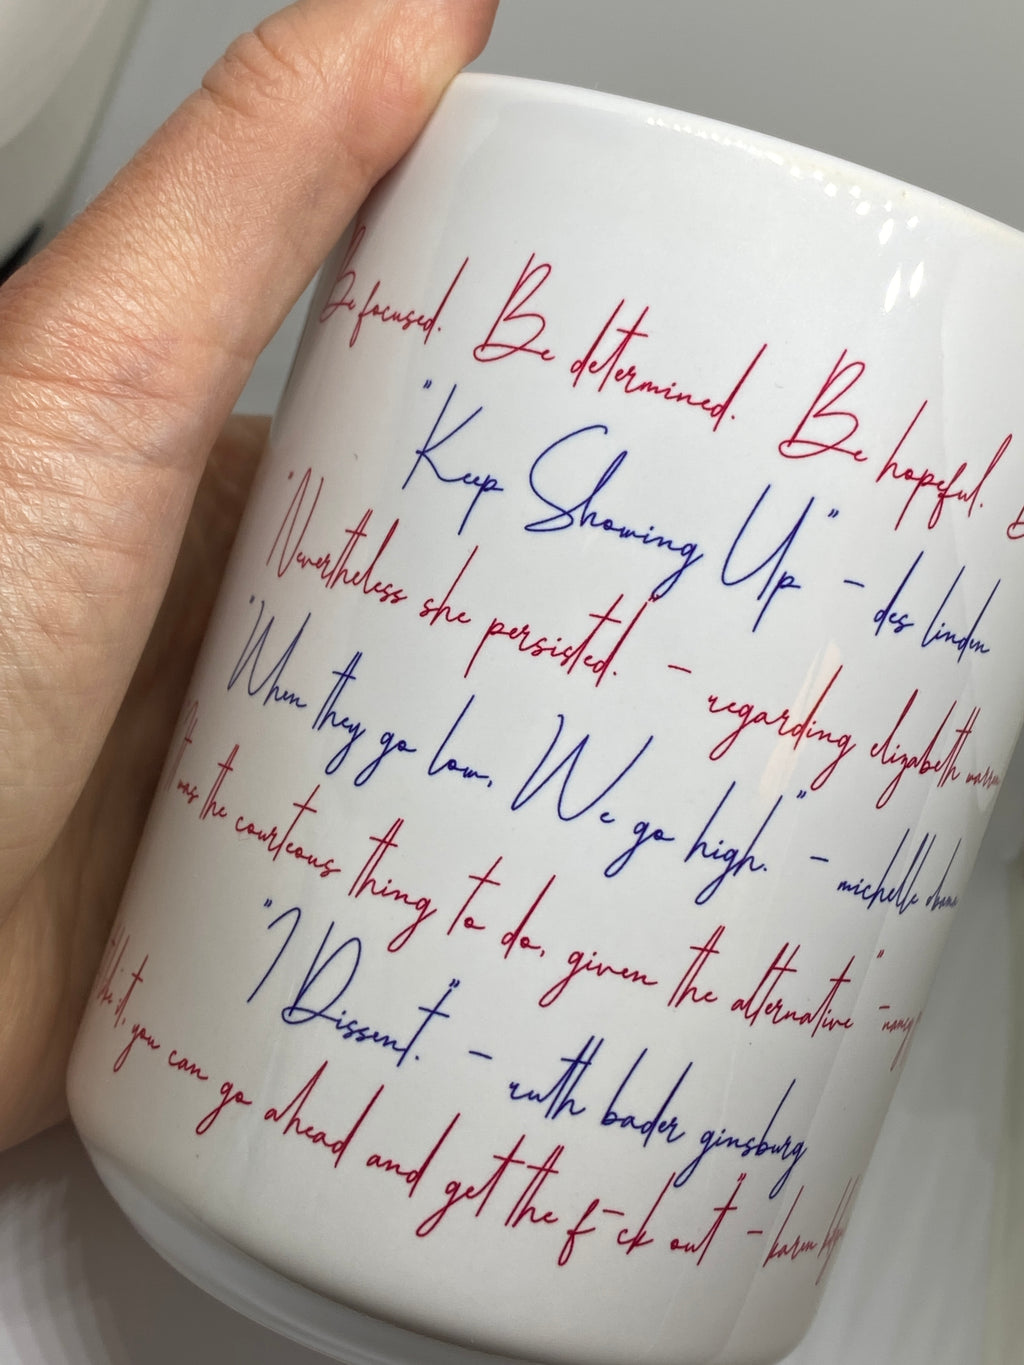 Be focused. Be determined. Be hopeful.
"Keep Showing Up" - des linden
"Nevertheless she persisted." - regarding elizabeth warren
"When they go low, We go high." - michelle obama
"It was the courteous thing to do, given the alternative" - nancy
"I Dissent." - ruth bader ginsburg
it, you can go ahead and get the f-ck out" - karen